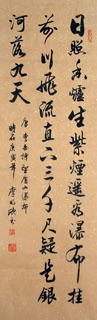 日照香爐生紫煙遙看瀑布挂
前川飛流直下三千尺疑是銀
河落九天
唐李白詩望廬山瀑布